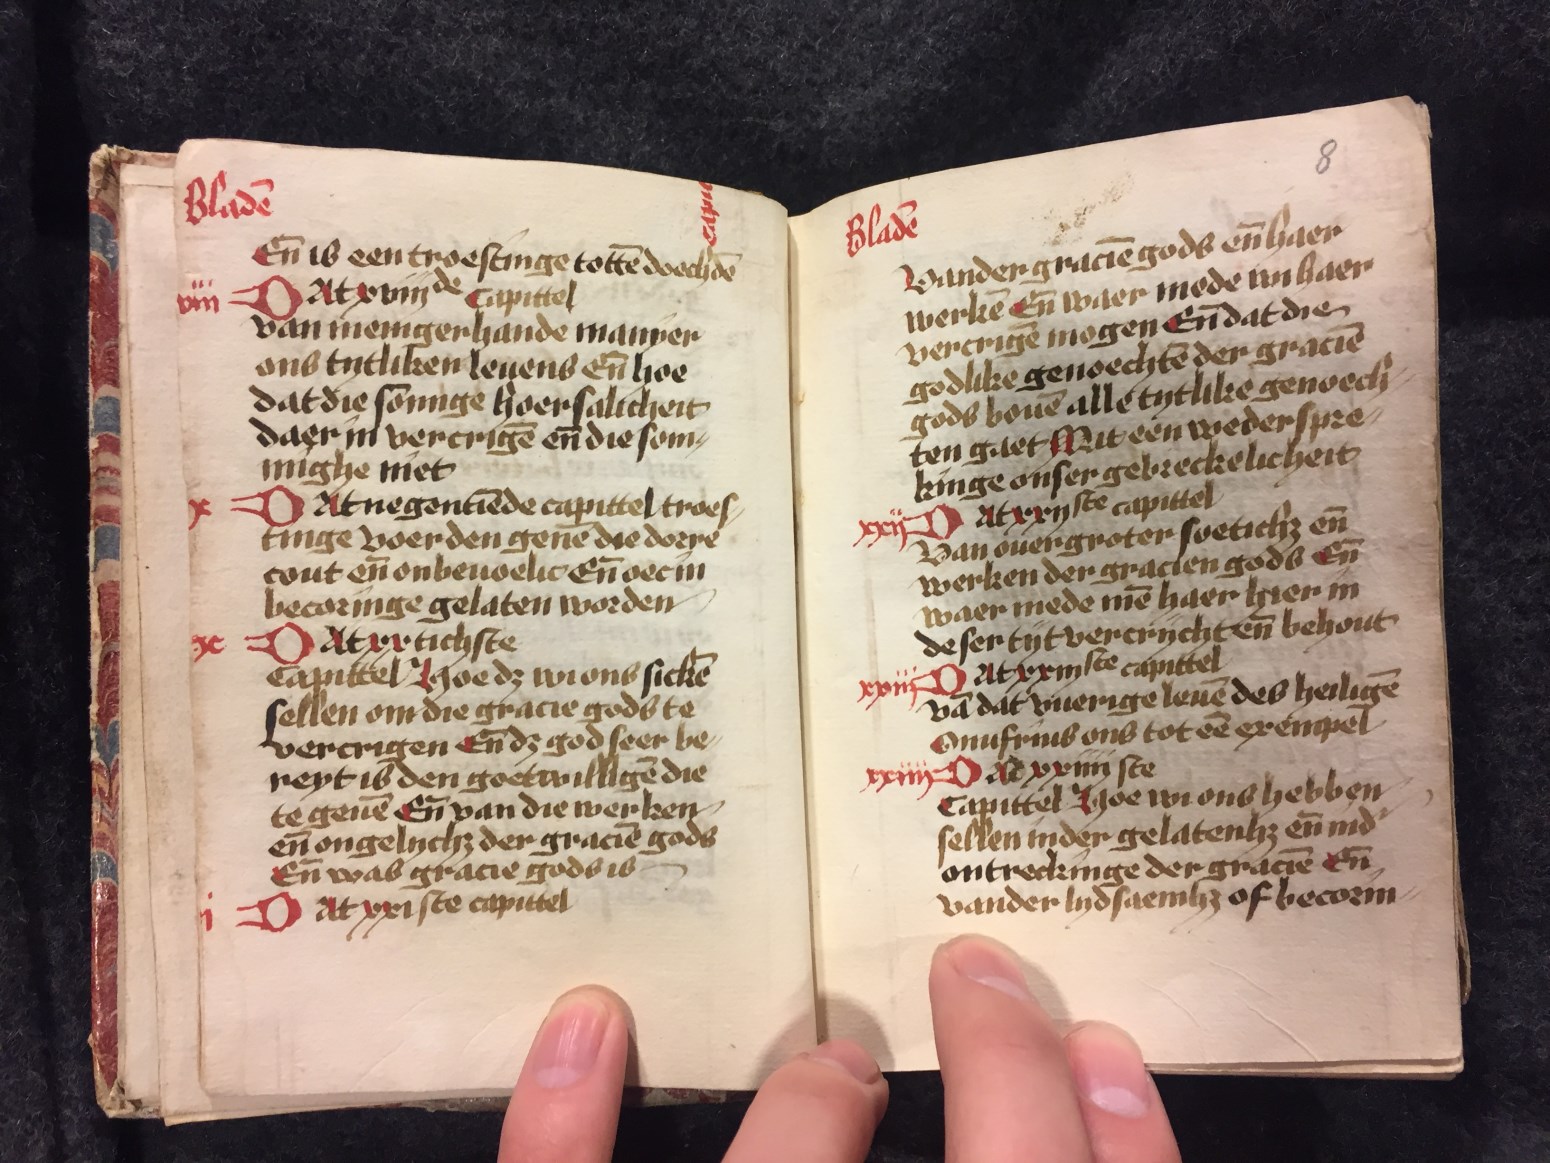 Bladē
Capit
Eñ is een troestinge tottē doechdē
viii DAt xviijde Capittel
van menigerhande manyer
ons tytliken leuens Eñ hoe
dat die sōmige hoer salicheit
daer in vercrigē eñ die som-
mighe niet
x DAt negentiēde capittel troes-
tinge voer den genē die dorre
cout eñ onbeuoelic Eñ oec in
becoringe gelaten worden
x DAt xxtichste
Capittel Hoe dz wi ons sickē
sellen om die gracie gods te
vercrigen Eñ dz god seer be-
reyt is den goetwilligē die
te geuē Eñ van die werken
eñ ongelychz der graciē gods
Eñ was gracie gods is
i DAt xxiste capittel
8
Bladē
Vander graciē gods eñ haer
werkē Eñ waer mede wi haer
vercrigē mogen Eñ dat die
godlike genoechtē der graciē
gods bouē alle tytlike genoech-
ten gaet Mit een wederspre-
kinge onser gebreckelicheit
xxij DAt xxijste capittel
Van ouergroter soetichz eñ
werken der gracien gods Eñ
waer mede mē haer hier in
deser tijt vercrijcht eñ behout
xxiij DAt xxiijste capittel
vā dat vuerige leuē des heiligē
Onufrius ons tot eē exempel
xxiiij DAt xxiiijste
Capittel Hoe wi ons hebben
sellen inder gelatenhz eñ ind'
ontreckinge der graciē Eñ
vander lydsaemhz of becorin-